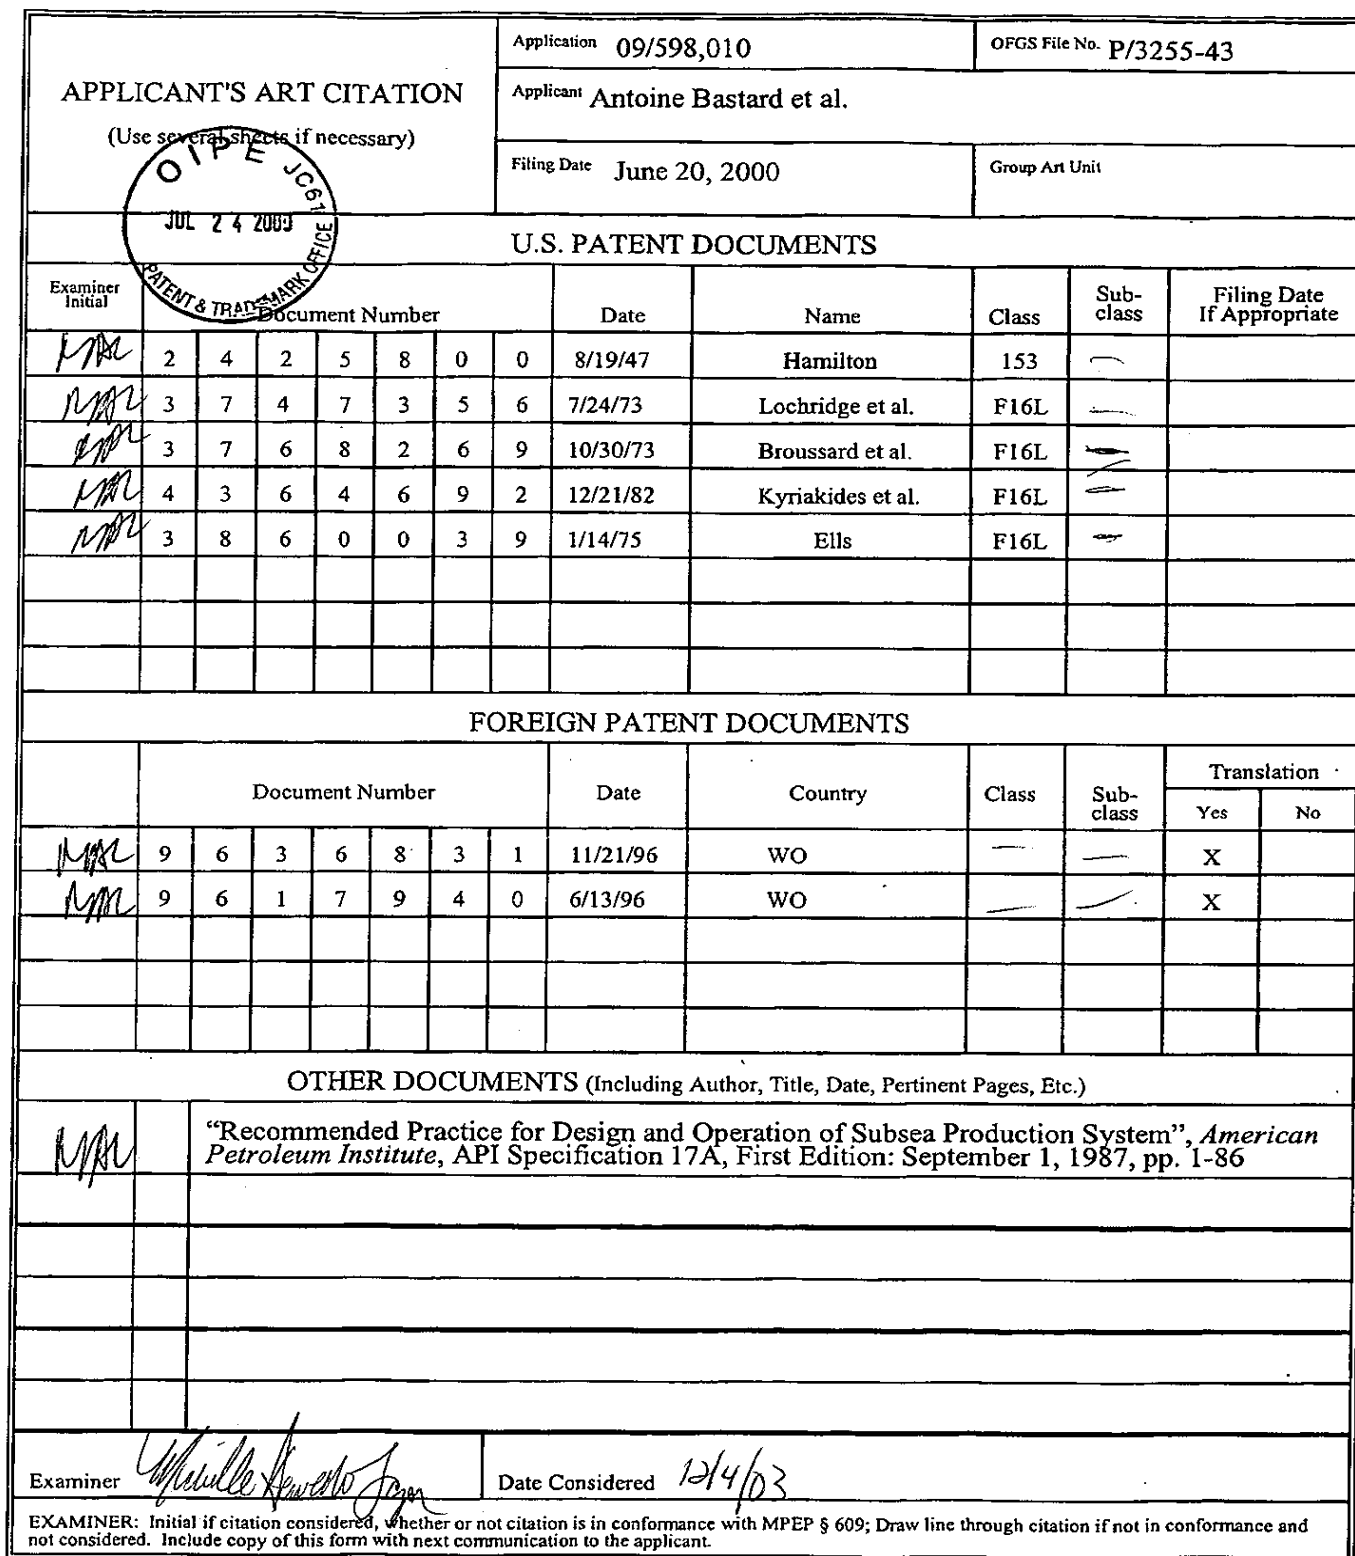 Application 09/598,010
OFGS File No. P/3255-43
APPLICANT'S ART CITATION
(Use several sheets if necessary)
Applicant Antoine Bastard et al.
Filing Date June 20, 2000
Group Art Unit
OIPE JC61
JUL 24 2000
PATENT & TRADEMARK OFFICE
U.S. PATENT DOCUMENTS
Examiner Initial Document Number Date Name Class Sub-class Filing Date If Appropriate
2 4 2 5 8 0 0 8/19/47 Hamilton 153 —
3 7 4 7 3 5 6 7/24/73 Lochridge et al. F16L —
3 7 6 8 2 6 9 10/30/73 Broussard et al. F16L —
4 3 6 4 6 9 2 12/21/82 Kyriakides et al. F16L —
3 8 6 0 0 3 9 1/14/75 Ells F16L —
FOREIGN PATENT DOCUMENTS
Document Number Date Country Class Sub-class Translation
Yes No
9 6 3 6 8 3 1 11/21/96 WO — — X
9 6 1 7 9 4 0 6/13/96 WO — — X
OTHER DOCUMENTS (Including Author, Title, Date, Pertinent Pages, Etc.)
“Recommended Practice for Design and Operation of Subsea Production System”, American
Petroleum Institute, API Specification 17A, First Edition: September 1, 1987, pp. 1-86
Examiner
Date Considered 12/4/03
EXAMINER: Initial if citation considered, whether or not citation is in conformance with MPEP § 609; Draw line through citation if not in conformance and
not considered. Include copy of this form with next communication to the applicant.